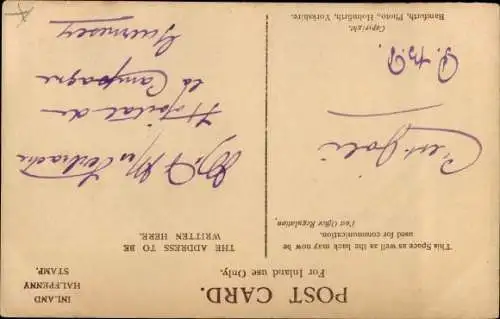 POST CARD.
For Inland use Only.
INLAND
HALFPENNY
STAMP.
This Space as well as the back may now be
used for communication.
Post Office Regulation.
THE ADDRESS TO BE
WRITTEN HERE.
Hôpital de
la Campagne
Guernsey
C'est Joli
Copyright.
Bamforth, Photo., Holmfirth, Yorkshire.